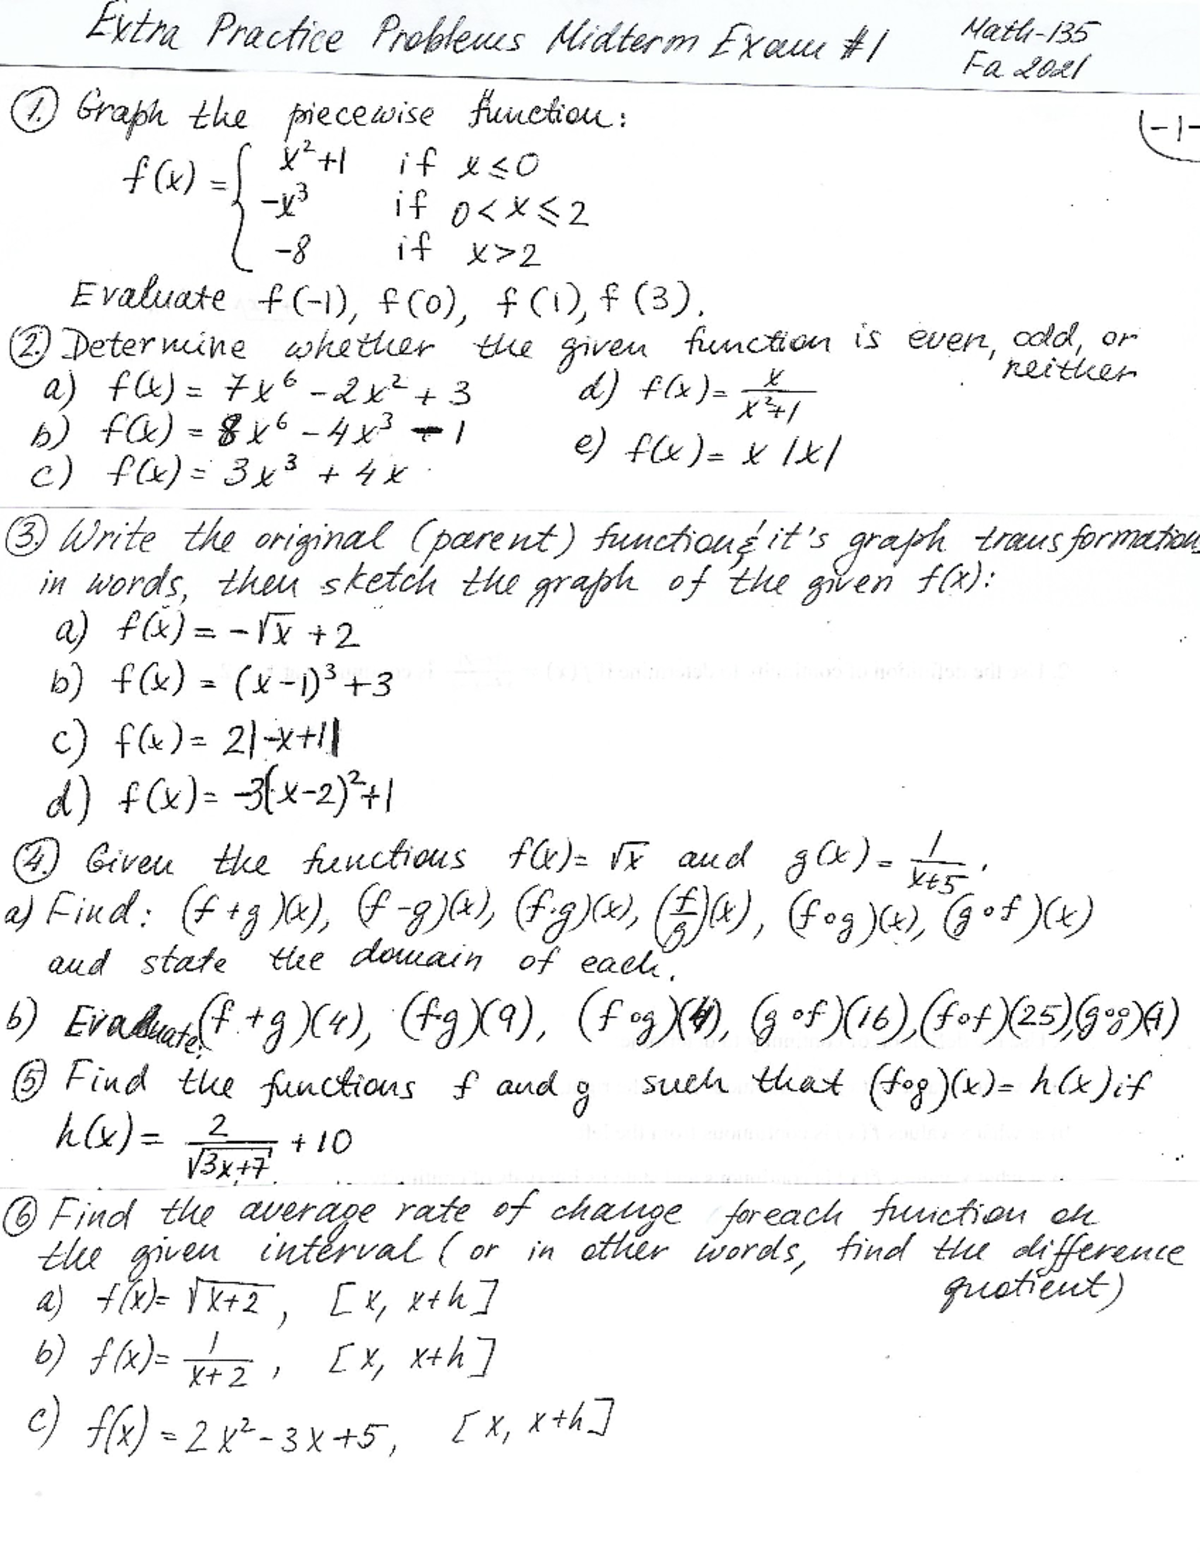 Extra Practice Problems Midterm Exam #1 Math-135
Fa 2021
-1-
1. Graph the piecewise function:
f(x) = { x²+1 if x≤0
-x³ if 0<x≤2
-8 if x>2
Evaluate f(-1), f(0), f(1), f(3).
2. Determine whether the given function is even, odd, or
neither
a) f(x) = 7x⁶ - 2x² + 3
d) f(x) = x/(x²+1)
b) f(x) = 8x⁶ - 4x³ - 1
e) f(x) = x |x|
c) f(x) = 3x³ + 4x
3. Write the original (parent) function & it's graph transformations
in words, then sketch the graph of the given f(x):
a) f(x) = -√x + 2
b) f(x) = (x-1)³+3
c) f(x) = 2|-x+1|
d) f(x) = -3(x-2)²+1
4. Given the functions f(x) = √x and g(x) = 1/(x+5).
a) Find: (f+g)(x), (f-g)(x), (f·g)(x), (f/g)(x), (f∘g)(x), (g∘f)(x)
and state the domain of each.
b) Evaluate: (f+g)(4), (fg)(9), (f∘g)(4), (g∘f)(16), (f∘f)(25), (g∘g)(1)
5 Find the functions f and g such that (f∘g)(x) = h(x) if
h(x) = 2/√(3x+7) + 10
6 Find the average rate of change for each function on
the given interval (or in other words, find the difference
quotient)
a) f(x) = √(x+2), [x, x+h]
b) f(x) = 1/(x+2), [x, x+h]
c) f(x) = 2x²-3x+5, [x, x+h]